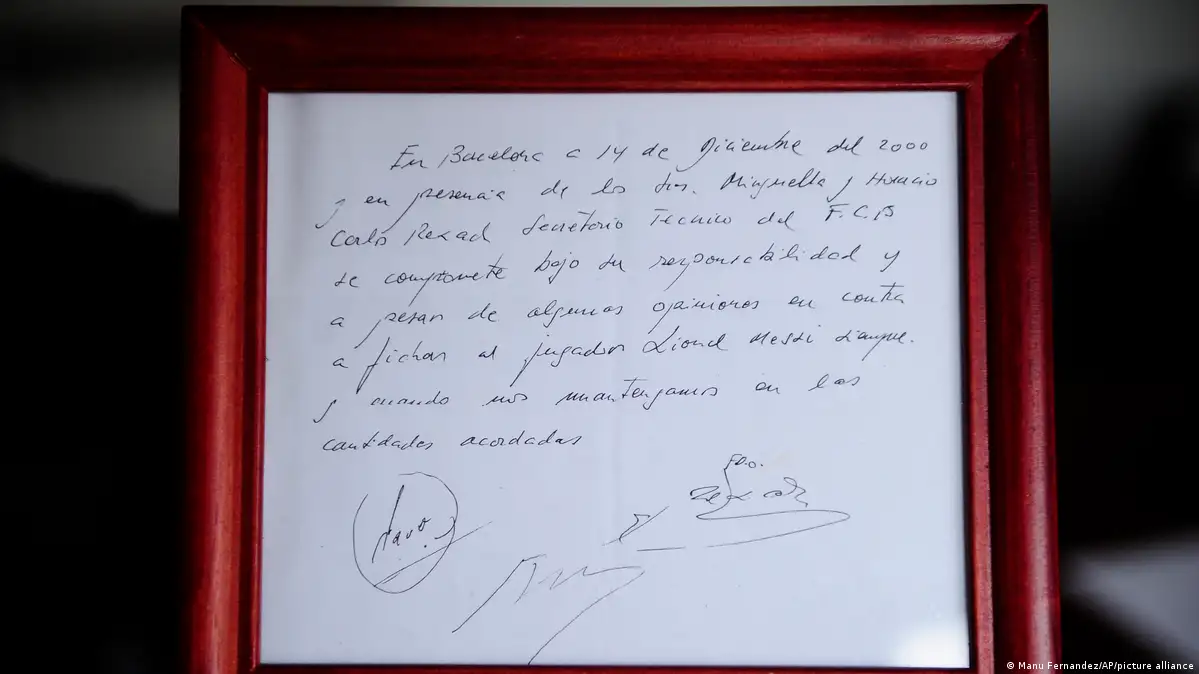 En Barcelona a 14 de Diciembre del 2000
y en presencia de los Srs. Minguella y Horacio
Carlos Rexach Secretario Técnico del F.C.B
se compromete bajo su responsabilidad y
a pesar de algunas opiniones en contra
a fichar al jugador Lionel Messi siempre
y cuando nos mantengamos en las
cantidades acordadas
FDO.
© Manu Fernandez/AP/picture alliance